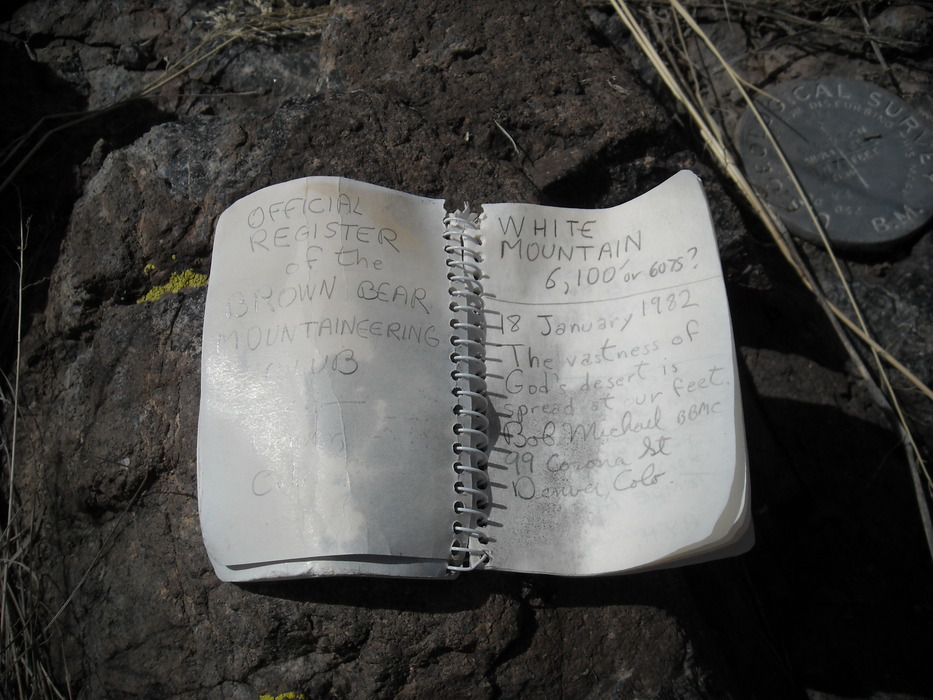 OFFICIAL
REGISTER
of the
BROWN BEAR
MOUNTAINEERING
CLUB
WHITE
MOUNTAIN
6,100' or 6075?
18 January 1982
The vastness of
God's desert is
spread at our feet.
Bob Michael BBMC
99 Corona St
Denver, Colo.
GICAL SURVEY
B.M.